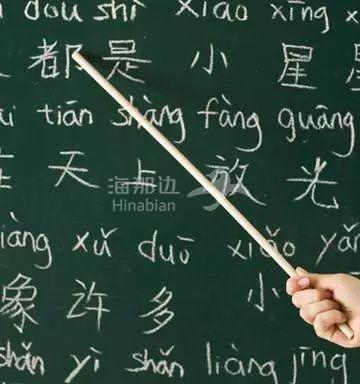 dou shì xiǎo xīng
都是 小 星
tiān shàng fàng guāng
天上放光
海那边
Hinabian
xǔ duō xiǎo yǎ
象许多 小
shǎn yì shǎn liàng jīng